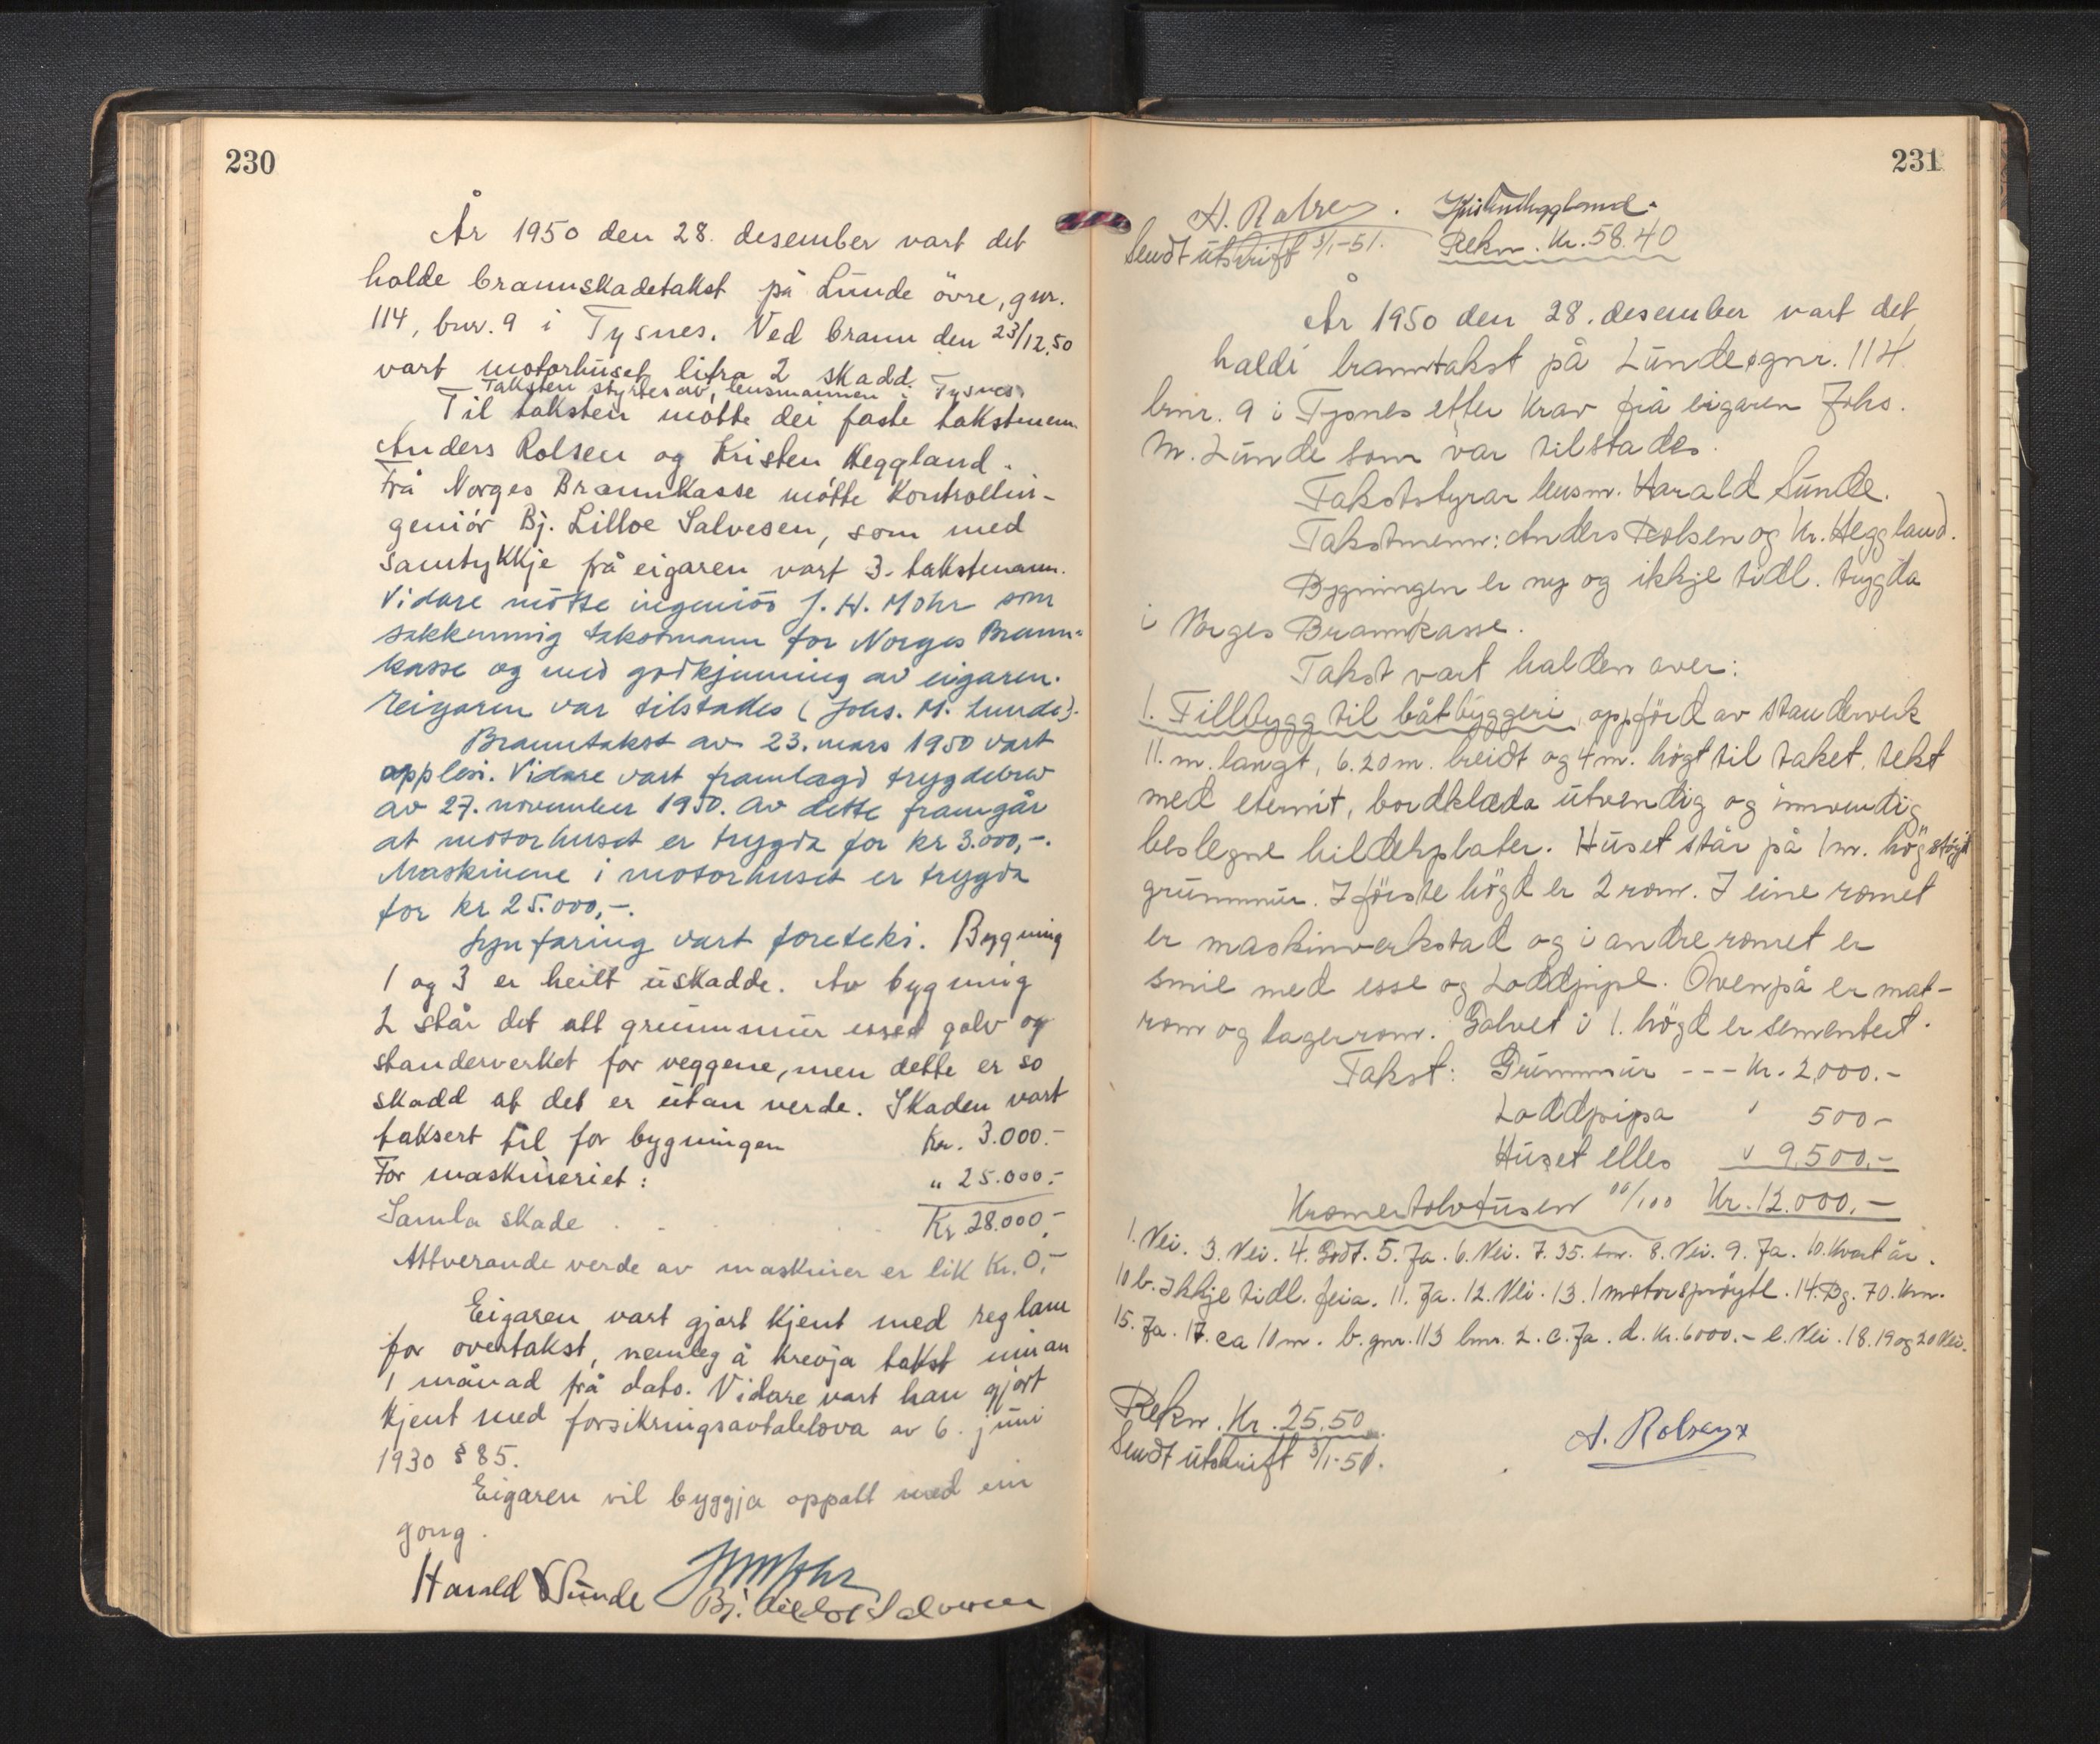 230
År 1950 den 28. desember vart det
halde brannskadetakst på Lunde övre, gnr.
114, bnr. 9 i Tysnes. Ved brann den 23/12.50
vart motorhuset litra 2 skadd.
Taksten styrtes av lensmannen i Tysnes
Til taksten møtte dei faste takstmenn
Anders Rolsen og Kristen Heggland.
Frå Norges Brannkasse møtte Kontrollin-
geniør Bj. Lilloe Salvesen, som med
samtykkje frå eigaren vart 3. takstmann.
Vidare møtte ingeniör J. H. Mohr som
sakkunnig takstmann for Norges Brann-
kasse og med godkjenning av eigaren.
Eigaren var tilstades (Johs. M. Lunde).
Branntakst av 23. mars 1950 vart
opplesi. Vidare vart framlagd trygdebrev
av 27. november 1950. Av dette framgår
at motorhuset er trygda for kr 3.000,-.
Maskinene i motorhuset er trygda
for kr 25.000,-.
Synfaring vart foreteki. Bygning
1 og 3 er heilt uskadde. Av bygning
2 står det att grunnmur golv og
standerverket for veggene, men dette er so
skadd at det er utan verde. Skaden vart
taksert til for bygningen Kr. 3.000.-
For maskineriet: " 25.000.-
Samla skade . . . Kr 28.000,-
Attverande verde av maskiner er lik Kr. 0,-
Eigaren vart gjort kjent med reglane
for overtakst, nemleg å krevja takst innan
1 månad frå dato. Vidare vart han gjort
kjent med forsikringsavtalelova av 6. juni
1930 § 85.
Eigaren vil byggja oppatt med ein
gong.
Harald Sunde JHMohr
Bj. Lilloe Salvesen
231
A. Rolsen. Kristen Heggland.
Sendt utskrift 3/1-51. Rekn. Kr. 58.40
År 1950 den 28. desember vart det
haldi branntakst på Lunde, gnr. 114
bnr. 9 i Tysnes etter krav frå eigaren Johs.
M. Lunde som var tilstades.
Takststyrar lensm. Harald Sunde.
Takstmenn: Anders Rolsen og Kr. Heggland.
Bygningen er ny og ikkje tidl. trygda
i Norges Brannkasse.
Takst vart halden over:
1. Tillbygg til båtbyggeri, oppförd av standerverk
11. m. langt, 6.20 m. breidt og 4 m. högt til taket, tekt
med eternit, bordklæda utvendig og innvendig
beslegne hildehplater. Huset står på 1 m. høg støypt
grunnmur. I förste högd er 2 rom. I eine romet
er maskinverkstad og i andre romet er
smie med esse og Loddpipe. Ovenpå er mat-
rom og lagerrom. Golvet i 1. högd er sementert.
Takst: Grunnmur --- Kr. 2,000.-
Loddpipa " 500-
Huset elles " 9.500.-
Kronertolvtusen 00/100 Kr. 12.000.-
1. Nei. 3. Nei. 4. Godt. 5. Ja. 6. Nei. 7. 35. km. 8. Nei. 9. Ja. 10. Kvart år.
10 b. Ikkje tidl. feia. 11. Ja. 12. Nei. 13. 1 motorspröyte. 14. Bg. 70. km.
15. Ja. 17. ca 10 m. b. gnr. 113 bnr. 2. c. Ja. d. Kr. 6000.- e. Nei. 18. 19 og 20 Nei.
Rekn. Kr. 25.50
Sendt utskrift 3/1-51.
A. Rolsen